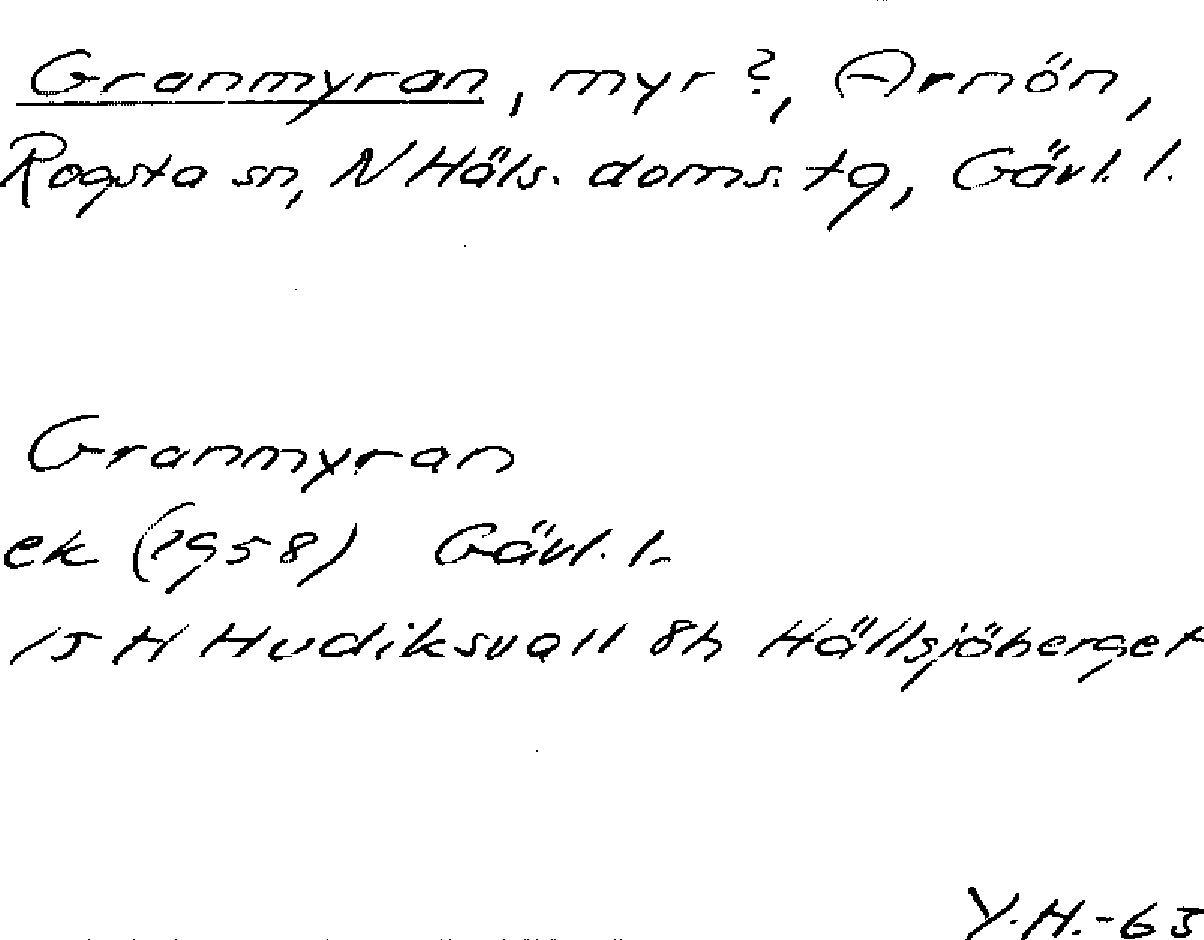 Granmyran, myr?, Arnön,
Rogsta sn, N Häls. doms. tg, Gävl. l.
Granmyran
ek (1958) Gävl. l.
15 H Hudiksvall 8h Hällsjöberget
Y.H.-63